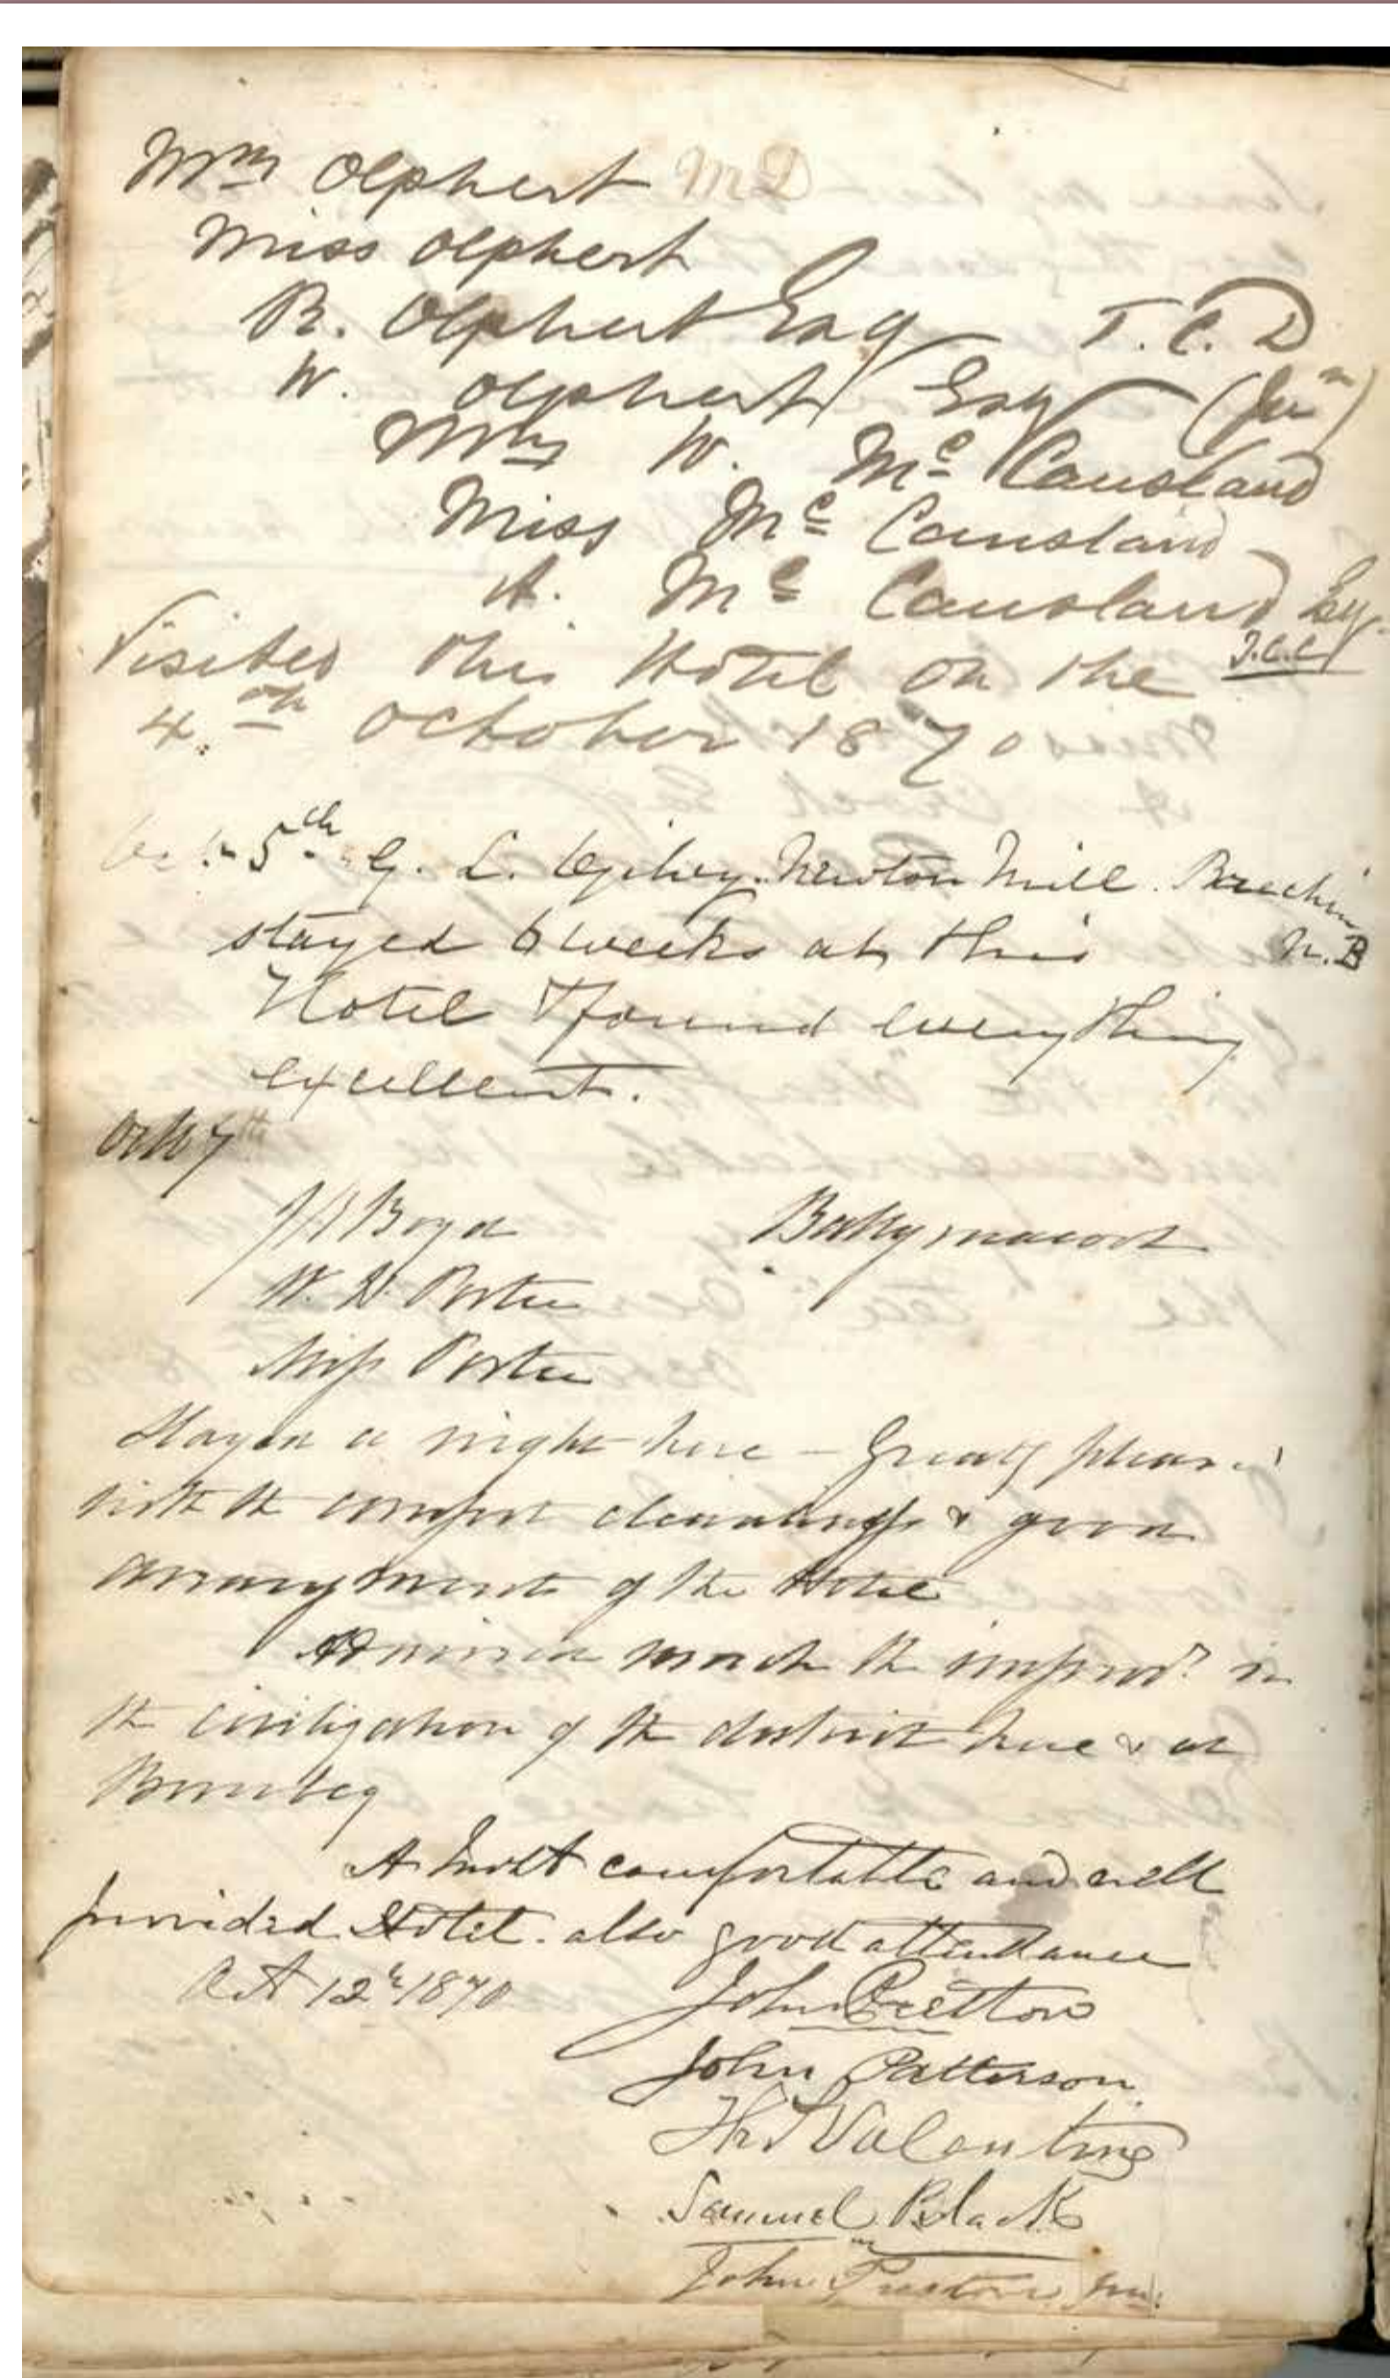 Wm Olphert MD
Miss Olphert
R. Olphert Esq T.C.D
W. Olphert Esq (Jun)
Mrs W. Mc Causland
Miss Mc Causland
A. Mc Causland Esq.
Visited this Hotel on the
4.th October 1870
Oct. 5th G. L. Ogilvy. Newton Mill. Brechin
stayed 6 weeks at this N.B
Hotel & found everything
excellent.
Oct 7th
J R Boyd Ballymacool
W. H. Porter
Miss Porter
Stayed a night here – Greatly pleased
with the comfort cleanliness & good
arrangements of the Hotel
Admired much the improvt in
the civilization of the district here & at
Bunbeg
A most comfortable and well
provided Hotel. also good attendance
Oct 12th 1870 John
John Patterson
Valentine
Samuel Black
John Preston Jun.